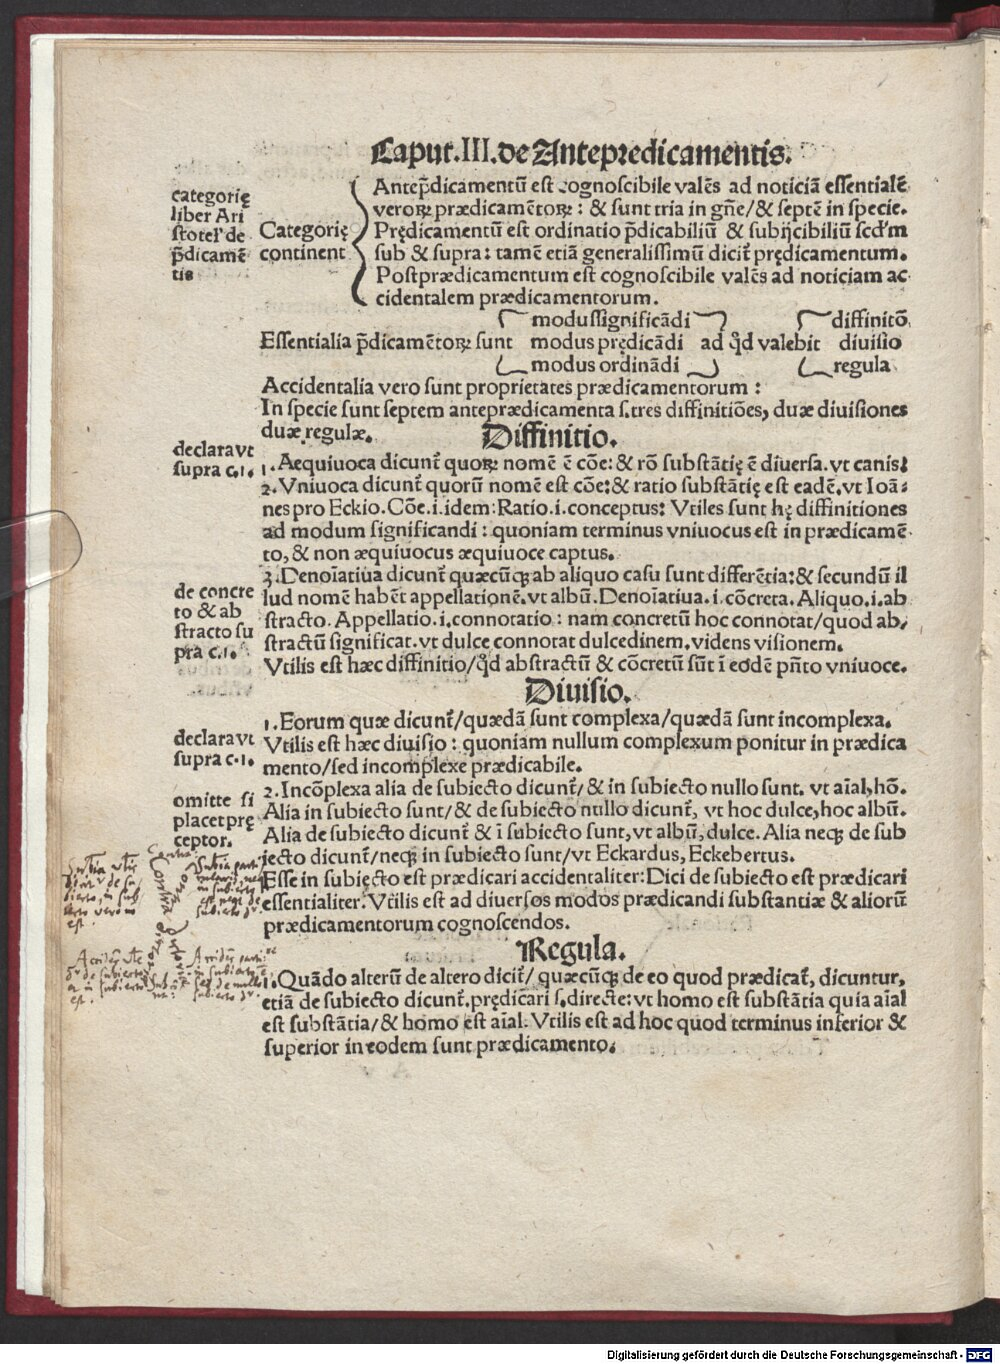 Caput.III.de Antepredicamentis.
categorię
liber Ari
stotel' de
p̃dicamē
tis
Categorię
continent
Antep̃dicamentũ est cognoscibile valẽs ad noticiã essentialẽ
veroꝝ prædicamẽtoꝝ: & sunt tria in gñe/& septẽ in specie.
Prędicamentũ est ordinatio p̃dicabiliũ & subijcibiliũ scd'm
sub & supra: tamẽ etiã generalissimũ dicit̃ prędicamentum.
Postprædicamentum est cognoscibile valẽs ad noticiam ac
cidentalem prædicamentorum.
modussignificãdi diffinitõ
Essentialia p̃dicamẽtoꝝ sunt modus prędicãdi ad q̃d valebit diuisio
modus ordinãdi regula
Accidentalia vero sunt proprietates prædicamentorum :
In specie sunt septem anteprædicamenta s.tres diffinitiões, duæ diuisiones
duæ regulæ.
Diffinitio.
declaravt
supra c.1.
1. Aequiuoca dicunt̃ quoꝝ nomẽ ẽ cõe: & rõ substãtię ẽ diuersa. vt canis!
2. Vniuoca dicunt̃ quorũ nomẽ est cõe: & ratio substãtię est eadẽ. vt Ioã-
nes pro Eckio. Cõe.i.idem: Ratio.i.conceptus: Vtiles sunt hę diffinitiones
ad modum significandi : quoniam terminus vniuocus est in prædicamẽ-
to, & non æquiuocus æquiuoce captus.
de concre
to & ab
stracto su
pra c.1.
3. Denoĩatiua dicunt̃ quæcũqꝫ ab aliquo casu sunt differẽtia: & secundũ il
lud nomẽ habẽt appellationẽ. vt albũ. Denoĩatiua.i.cõcreta. Aliquo.i.ab
stracto. Appellatio.i.connotatio: nam concretũ hoc connotat/quod ab,
stractũ significat. vt dulce connotat dulcedinem. videns visionem.
Vtilis est hæc diffinitio/q̃d abstractũ & cõcretũ sũt ĩ eodẽ pñto vniuoce.
Diuisio.
declaravt
supra c.1.
1. Eorum quæ dicunt̃/quædã sunt complexa/quædã sunt incomplexa.
Vtilis est hæc diuisio : quoniam nullum complexum ponitur in prædica
mento/sed incomplexe prædicabile.
omitte si
placet prę
ceptor.
2. Incõplexa alia de subiecto dicunt̃/ & in subiecto nullo sunt. vt aĩal, hõ.
Alia in subiecto sunt/& de subiecto nullo dicunt̃, vt hoc dulce, hoc albũ.
Alia de subiecto dicunt̃ & ĩ subiecto sunt, vt albũ, dulce. Alia neqꝫ de sub
iecto dicunt̃/neqꝫ in subiecto sunt/vt Eckardus, Eckebertus.
Esse in subięcto est prædicari accidentaliter: Dici de subiecto est prædicari
essentialiter. Vtilis est ad diuersos modos prædicandi substantiæ & aliorũ
prædicamentorum cognoscendos.
Regula.
1. Quãdo alterũ de altero dicit̃/ quæcũqꝫ de eo quod prædicat̃, dicuntur,
etiã de subiecto dicunt̃. prędicari s. directe: vt homo est substãtia quia aĩal
est substãtia/& homo est aĩal. Vtilis est ad hoc quod terminus inferior &
superior in eodem sunt prædicamento.
Digitalisierung gefördert durch die Deutsche Forschungsgemeinschaft - DFG